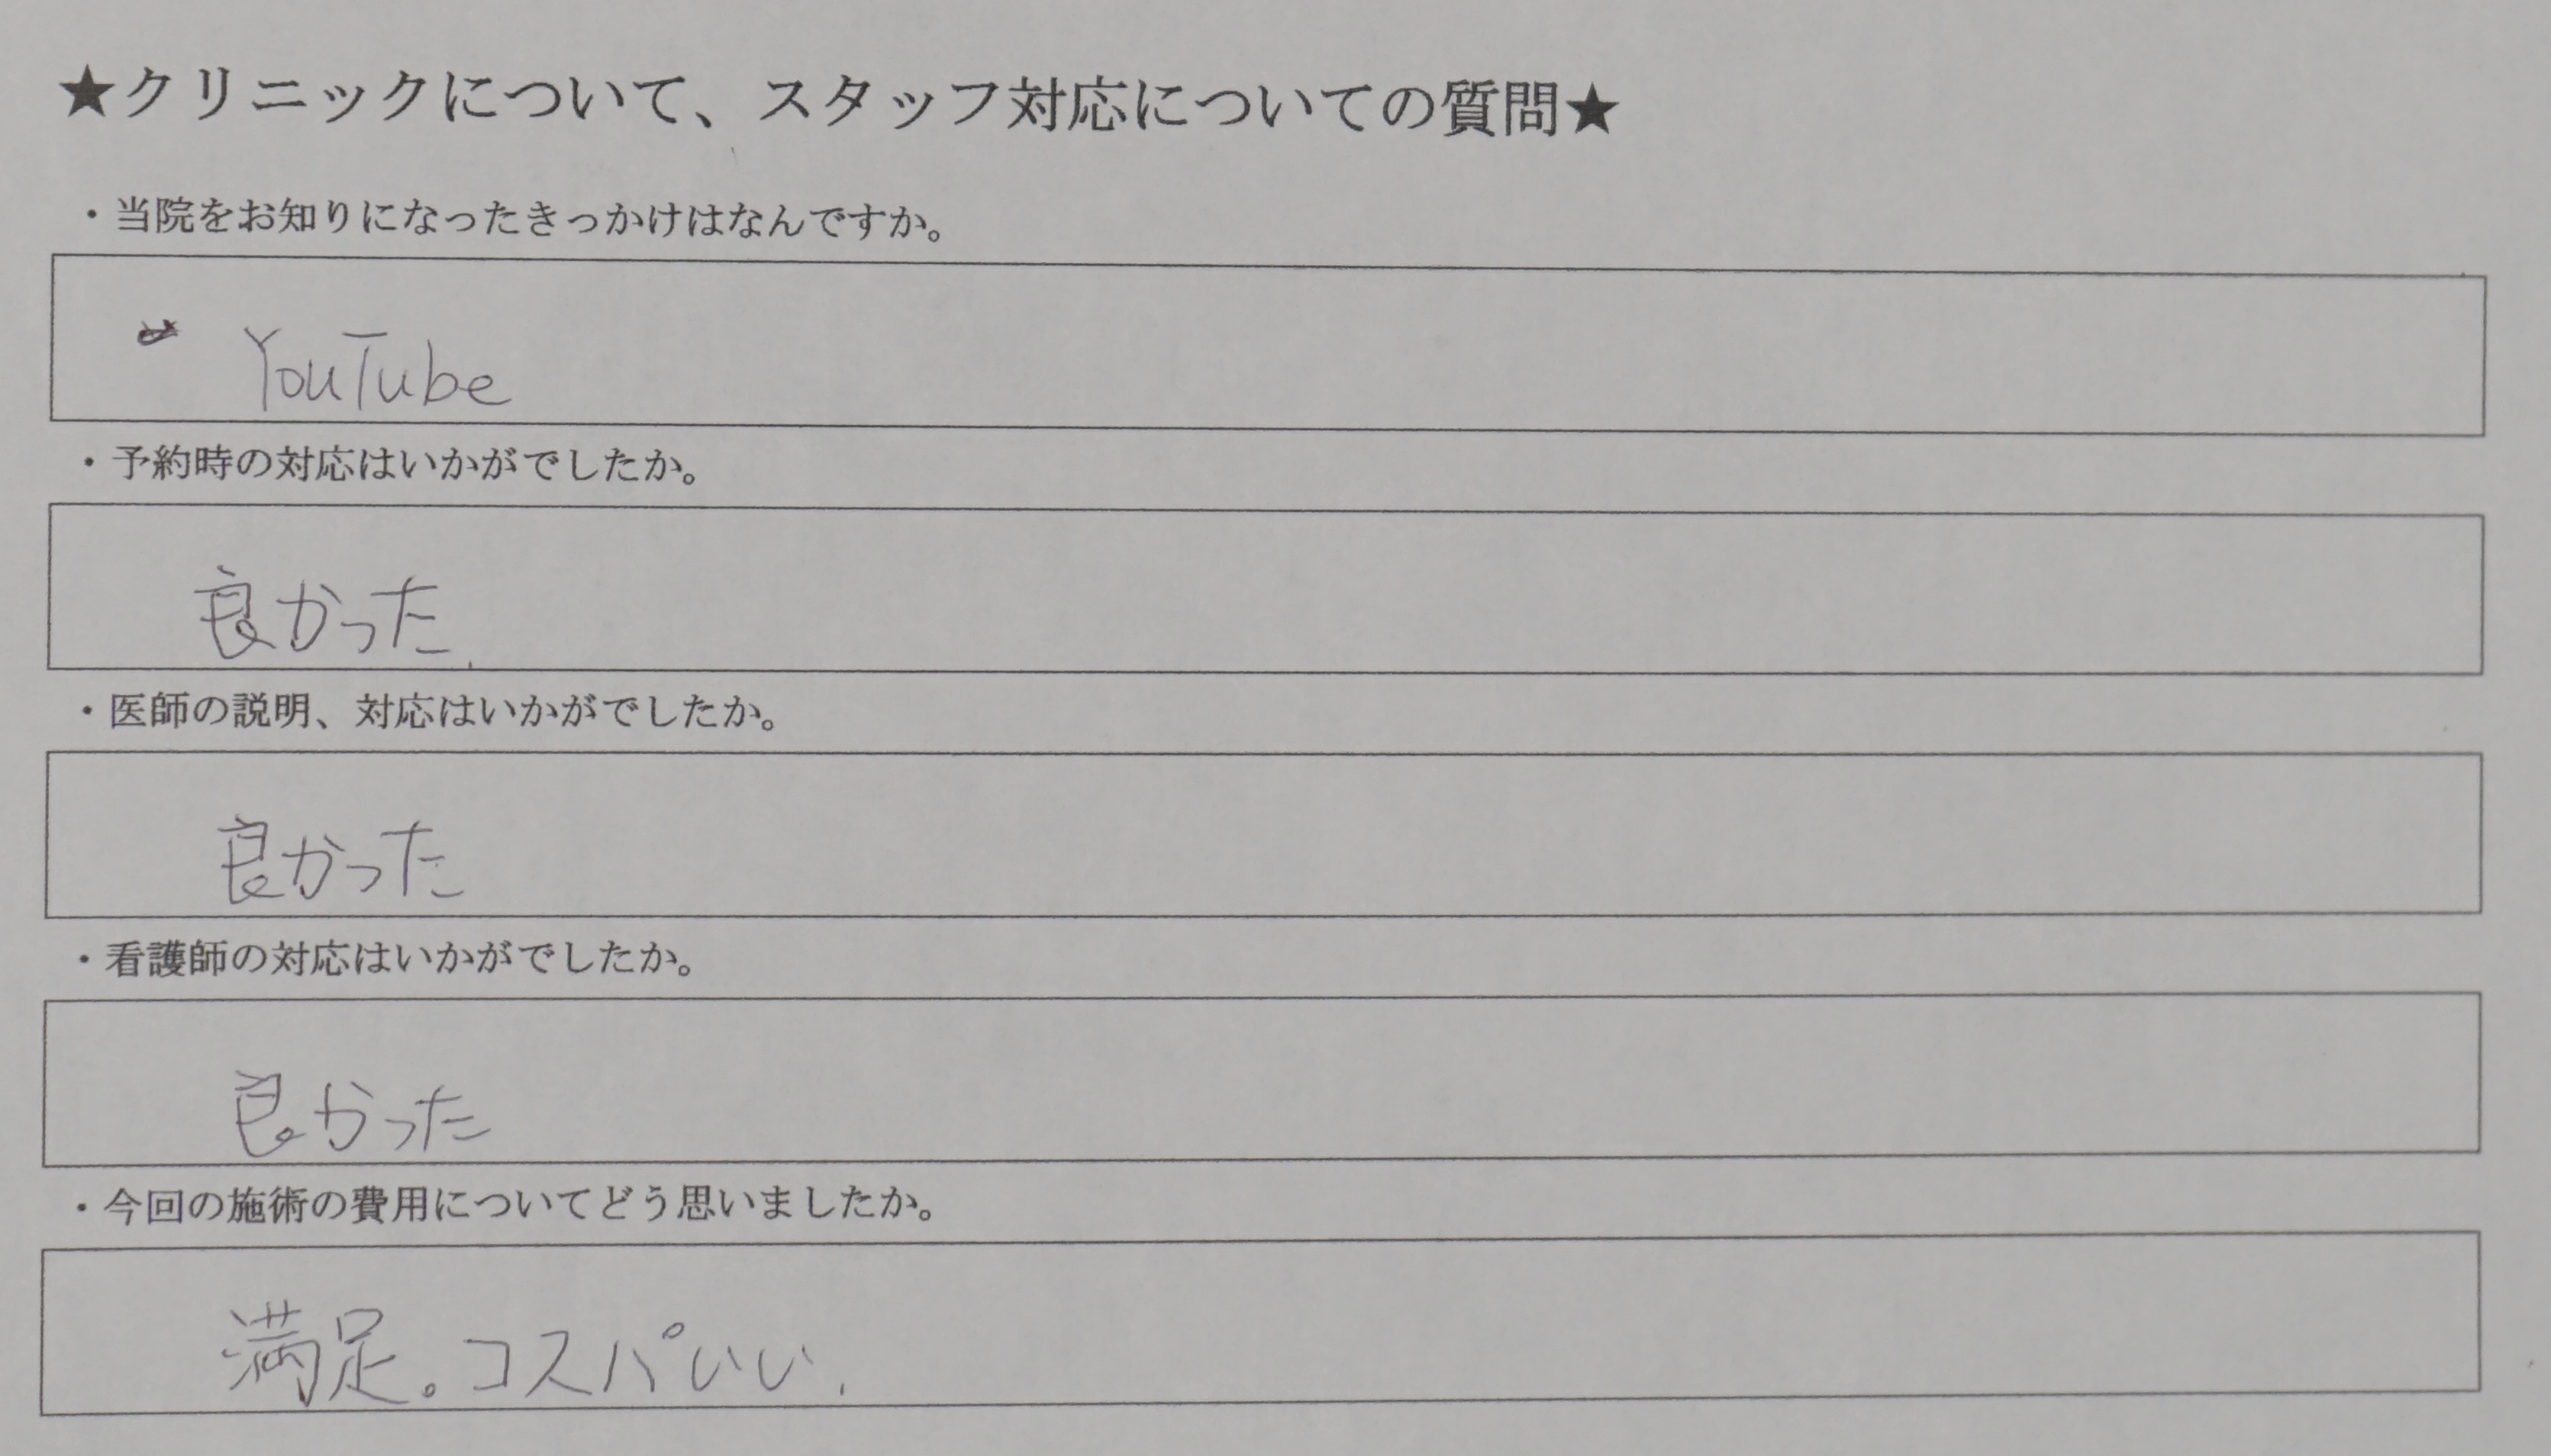 ★クリニックについて、スタッフ対応についての質問★
・当院をお知りになったきっかけはなんですか。
YouTube
・予約時の対応はいかがでしたか。
良かった
・医師の説明、対応はいかがでしたか。
良かった
・看護師の対応はいかがでしたか。
良かった
・今回の施術の費用についてどう思いましたか。
満足。コスパいい.